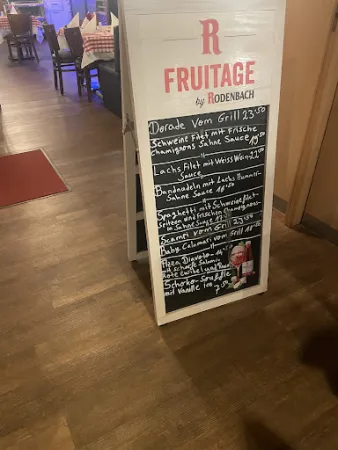 R
FRUITAGE
by RODENBACH
Dorade Vom Grill 23,50
Schweine Filet mit Frische
Champignons Sahne Sauce
Lachs Filet mit Weiss Wein
Sauce
Bandnudeln mit Lachs
Sahne Sauce
Spaghetti mit Schweinefilet
Spitzen und Frischen
in Sahne Sauce
Scampi vom Grill 23,50
Baby Calamari vom Grill
Pizza Diavolo
mit scharfe Salami
Rote Zwiebel und
Schoko Souffle
mit Vanille 7,50